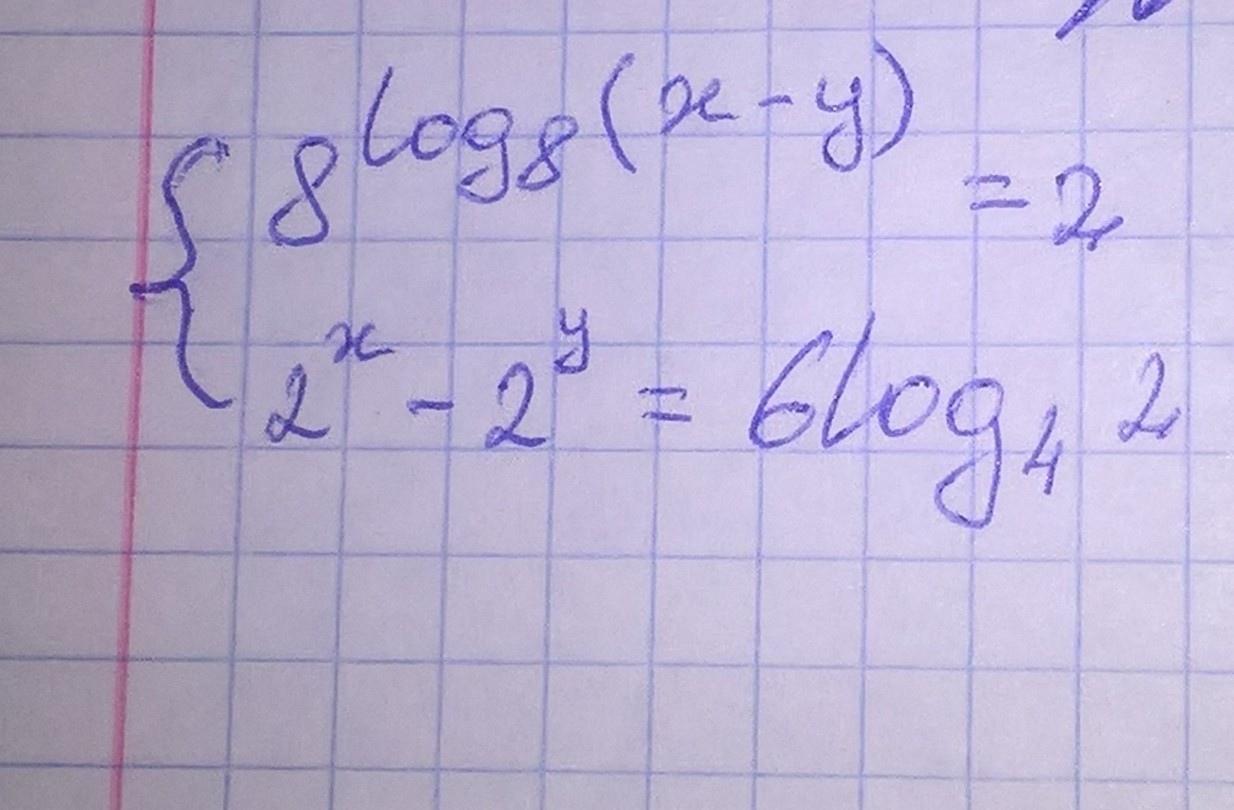 8^{log_8(x-y)} = 2
2^x - 2^y = 6log_4 2